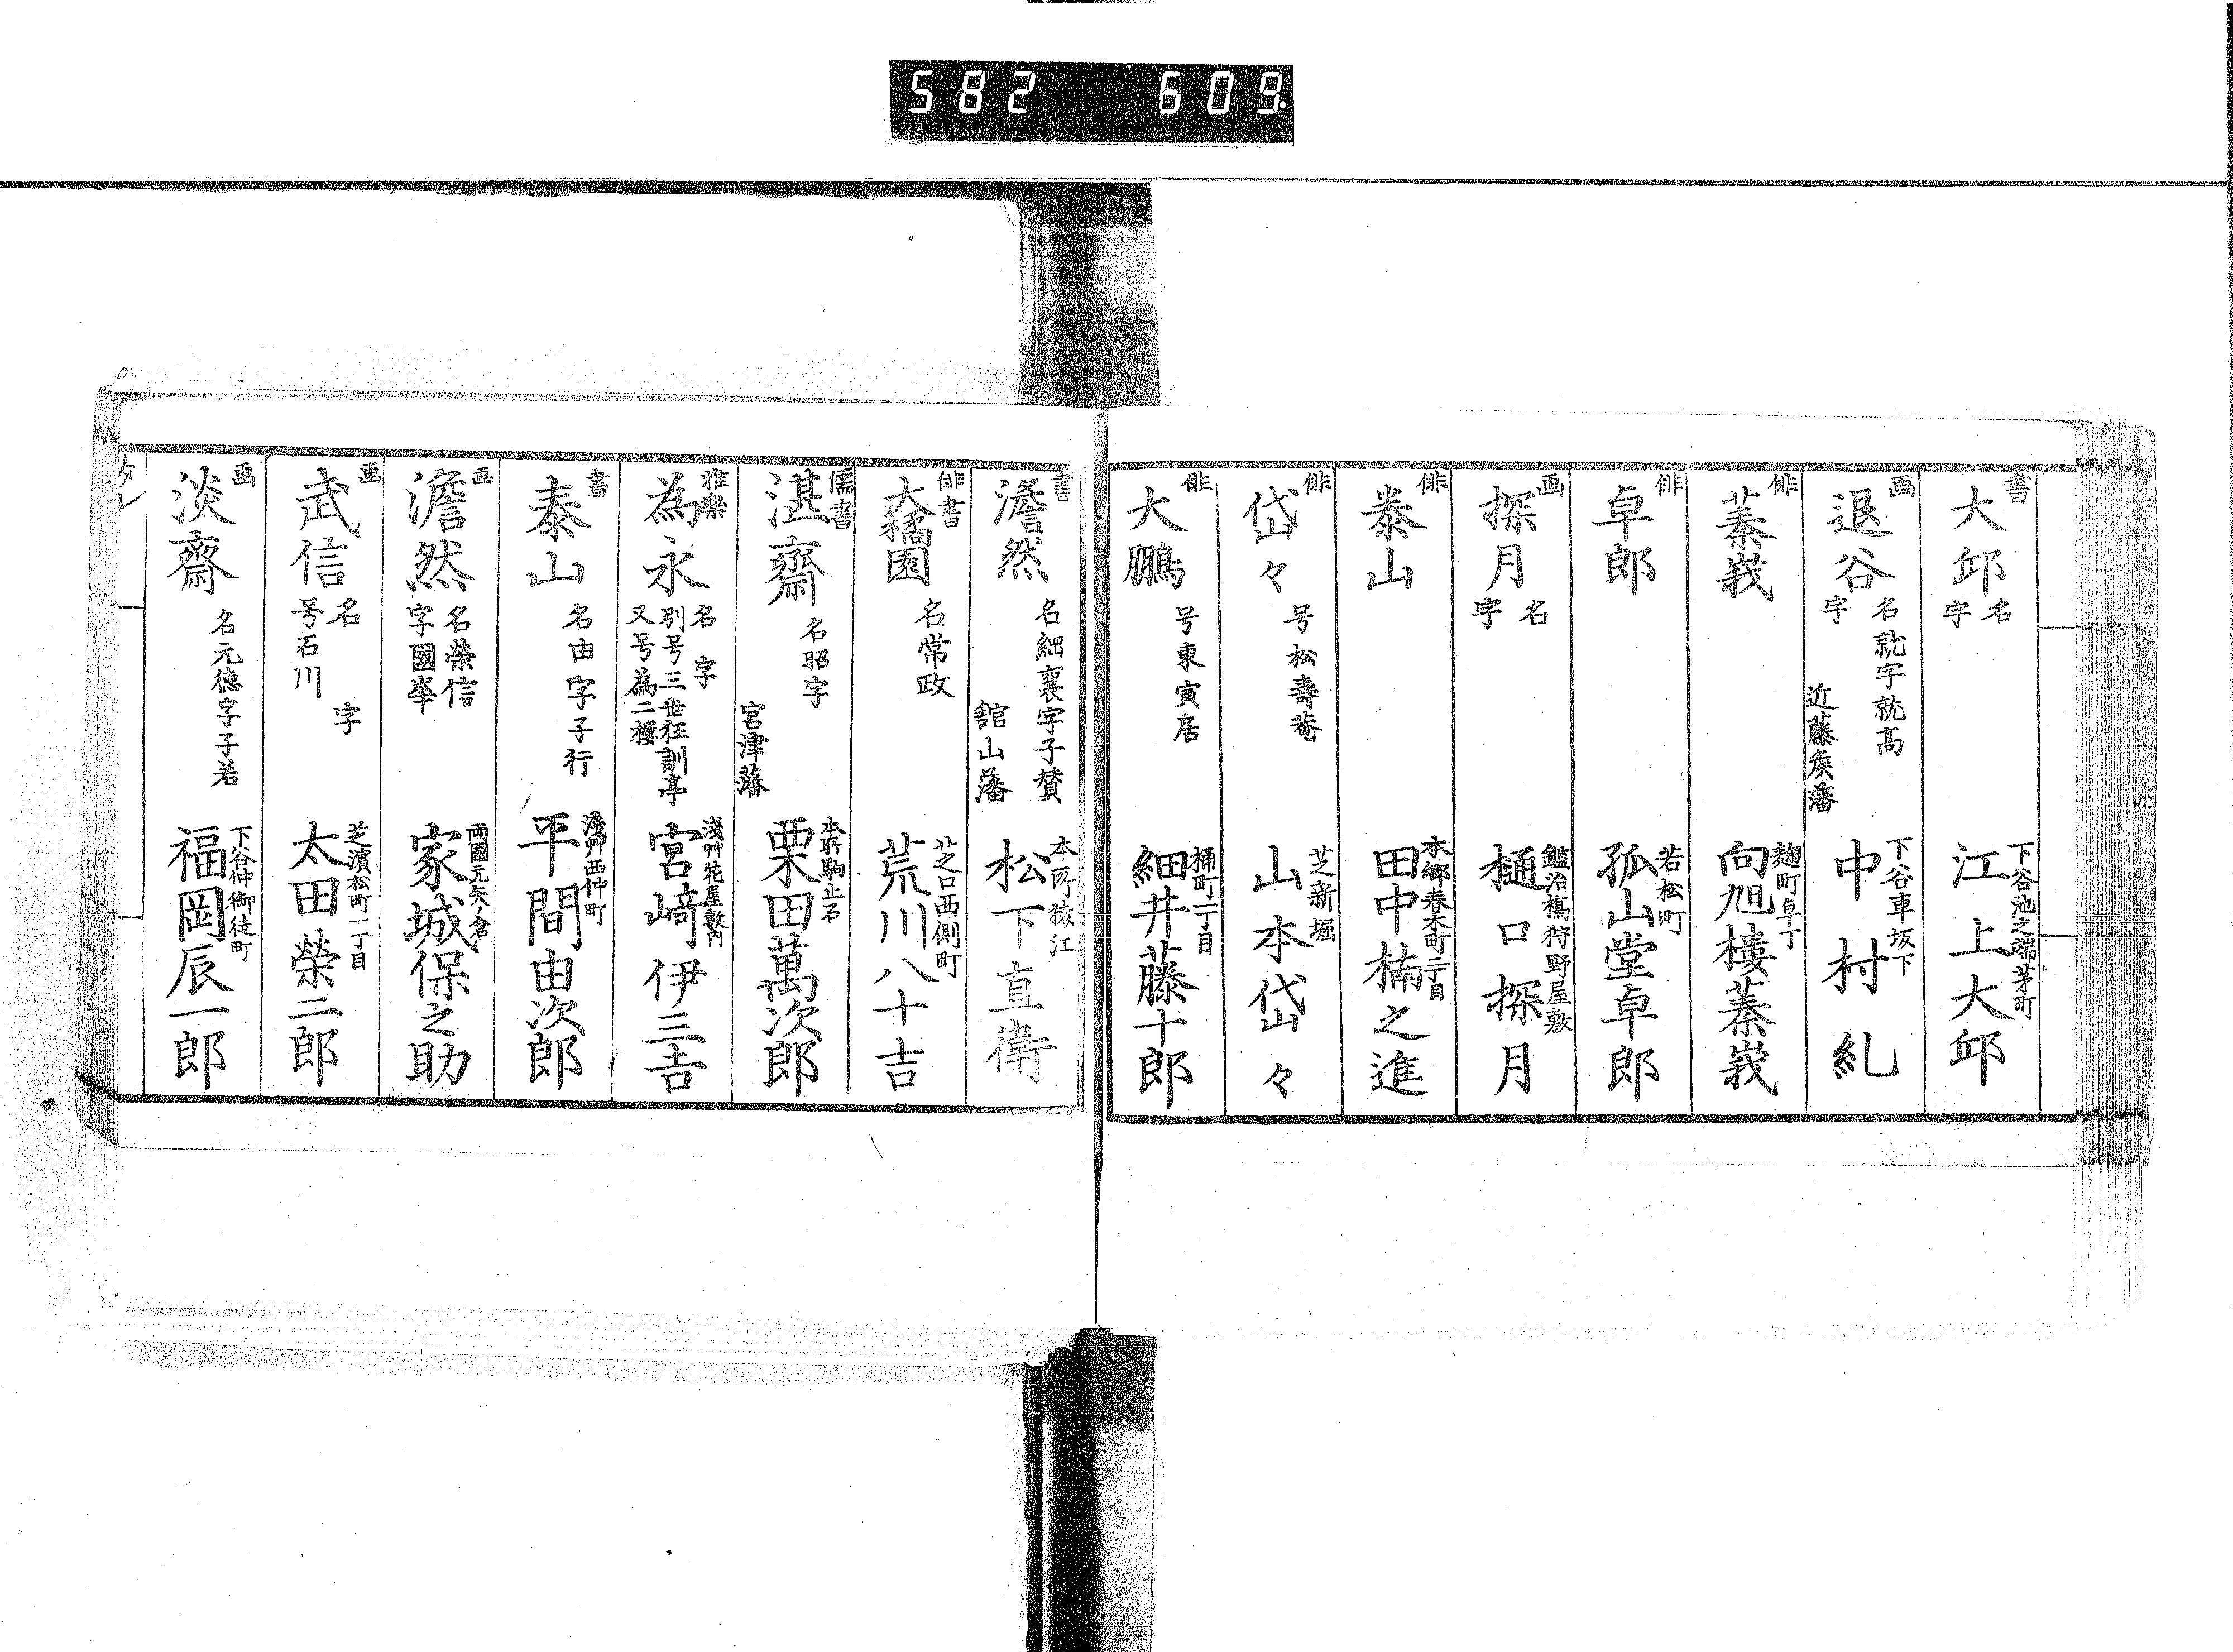 582 609.
書 大邱 名 字 下谷池之端茅町 江上大邱
画 退谷 名就字就高 字 近藤矦藩 下谷車坂下 中村糺
俳 蓁峩 麹町卓丁 向旭樓蓁峩
俳 卓郎 若松町 孤山堂卓郎
画 探月 名 字 鑑治橋狩野屋敷 樋口探月
俳 泰山 本郷春木町二丁目 田中楠之進
俳 岱々 号松壽菴 芝新堀 山本岱々
俳 大鵬 号東寅居 桶町二丁目 細井藤十郎
書 澹然 名綱襄字子賛 舘山藩 本所猿江 松下直衛
俳書 大橘園 名常政 芝口西側町 荒川八十吉
儒書 湛齋 名昭字 宮津藩 本所駒止石 栗田萬次郎
雅樂 為永 名 字 別号三世狂訓亭 又号為二樓 淺艸花屋敷内 宮﨑伊三吉
書 泰山 名由字子行 淺艸西仲町 平間由次郎
画 澹然 名榮信 字國華 両國元矢ノ倉 家城保之助
画 武信 名 字 号石川 芝濱松町一丁目 太田榮二郎
画 淡齋 名元徳字子若 下谷仲御徒町 福岡辰一郎
タレ